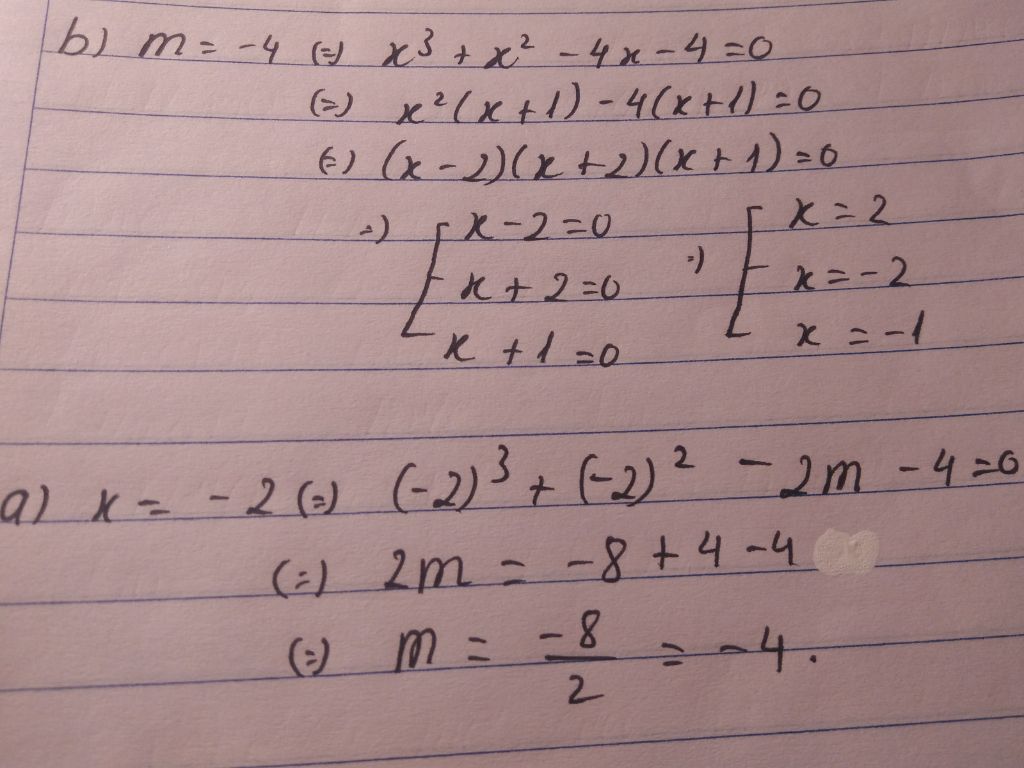 b) m = -4 (=) x³ + x² - 4x - 4 = 0
(=) x²(x + 1) - 4(x + 1) = 0
(=) (x - 2)(x + 2)(x + 1) = 0
=) [ x - 2 = 0 =) [ x = 2
x + 2 = 0 x = -2
x + 1 = 0 x = -1
a) x = -2 (=) (-2)³ + (-2)² - 2m - 4 = 0
(=) 2m = -8 + 4 - 4
(=) m = -8/2 = -4.